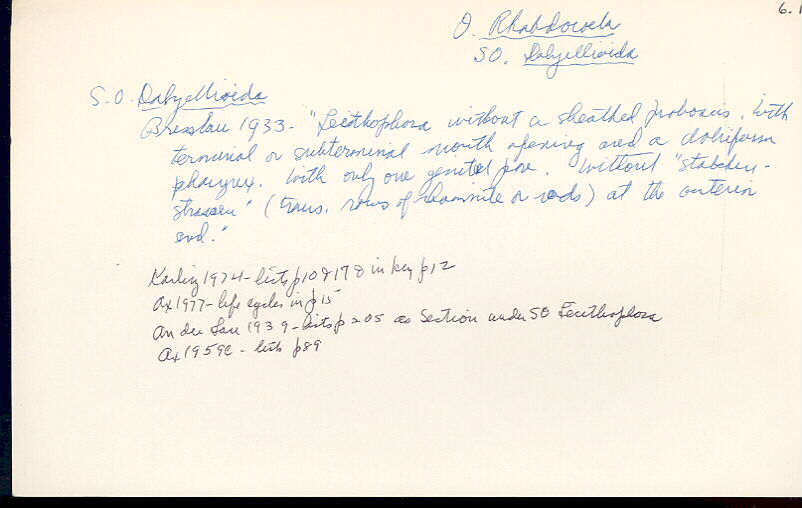 6.1
O. Rhabdocoela
SO. Dalyellioida
S.O. Dalyellioida
Bresslau 1933 - "Lecithophora without a sheathed proboscis. With
terminal or subterminal mouth opening and a doliiform
pharynx. With only one genital pore. Without "stabchen-
strassen" (trans. rows of rhammite or rods) at the anterior
end."
Karling 1974 - lists p10 & 178 in key p12
Ax 1977 - life cycles in p15
An der Lan 1939 - lists p 205 as Section under SO Lecithophora
Ax 1959c - lists p89